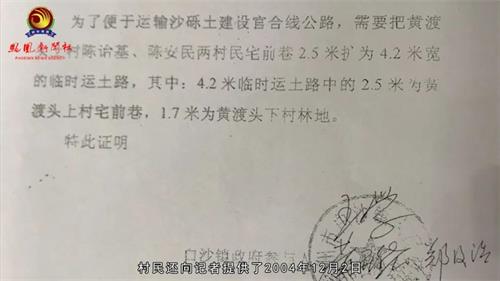 为了便于运输沙砾土建设官合线公路，需要把黄渡
村陈诒基、陈安民两村民宅前巷 2.5 米扩为 4.2 米宽
的临时运土路，其中：4.2 米临时运土路中的 2.5 米为黄
渡头上村宅前巷，1.7 米为黄渡头下村林地。
特此证明
白沙镇政府参与人
村民还向记者提供了2004年12月2日